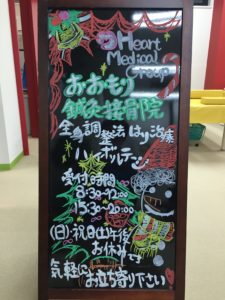 Heart
Medical
Group
おおもり
鍼灸接骨院
全身調整法 はり治療
ボルテン
受付時間
8:30~12:00
15:30~20:00
(日)祝日(土)午後
お休みです
気軽にお立ち寄り下さい